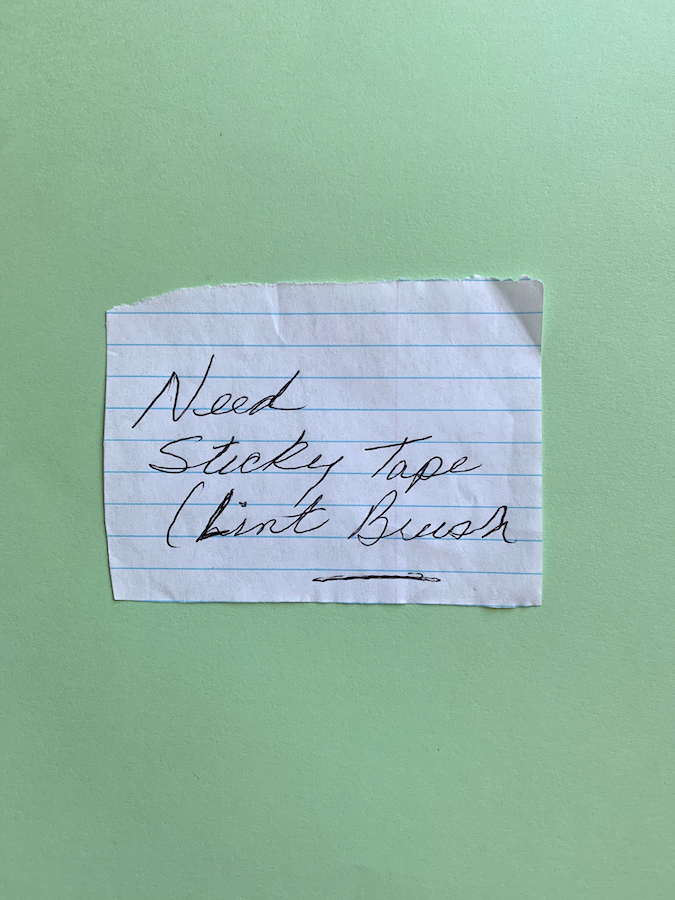 Need
Sticky Tape
(Lint Brush